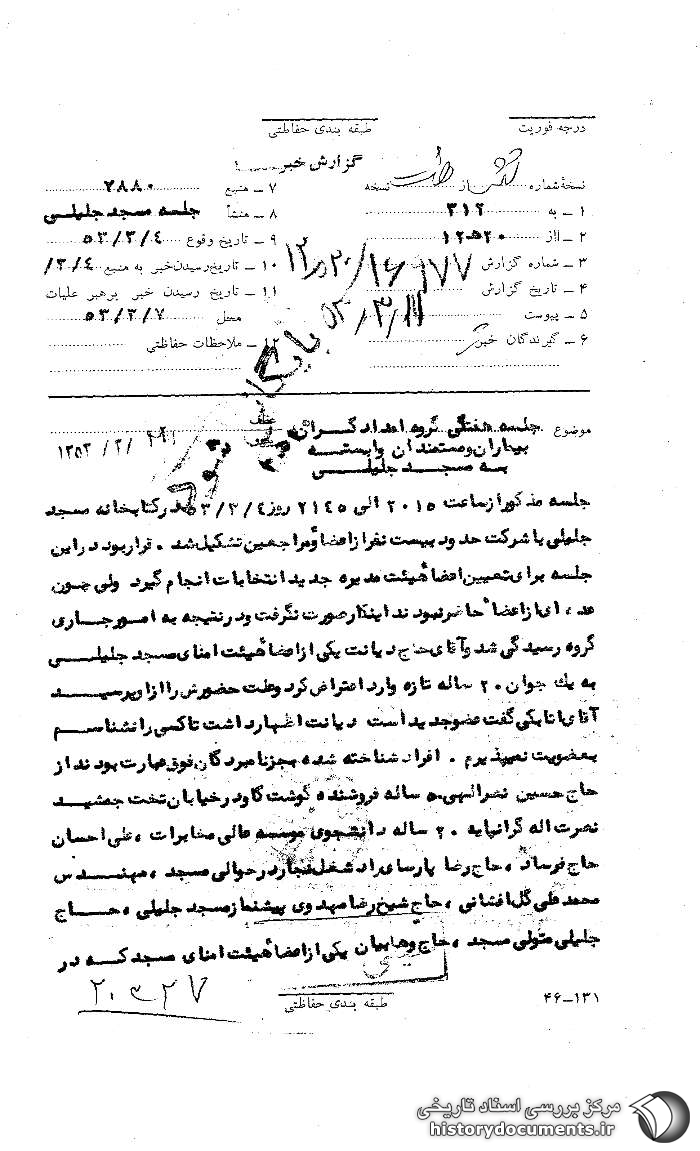 درجه فوریت
طبقه بندی حفاظتی
گزارش خبر
نسخهٔ شماره از نسخه
۱ - به ۳۱۲
۲ - از ۱۲ه۲۰
۳ - شماره گزارش
۴ - تاریخ گزارش
۵ - پیوست
۶ - گیرندگان خبر
۷ - منبع ۲۸۸۰
۸ - منشأ جلسه مسجد جلیلی
۹ - تاریخ وقوع ۵۳/۳/۴
۱۰ - تاریخ رسیدن خبر به منبع ۳/۴/
۱۱ - تاریخ رسیدن خبر برهبر عملیات
محل ۵۳/۳/۷
۱۲ - ملاحظات حفاظتی
بایگانی
موضوع جلسه هفتگی گروه امدادگران
بیماران ومستمندان وابسته
به مسجد جلیلی
جلسه مذکور از ساعت ۲۰۱۵ الی ۲۱۴۵ روز ۵۳/۳/۴ در کتابخانه مسجد
جلیلی با شرکت حدود بیست نفر از اعضا و مراجعین تشکیل شد . قرار بود در این
جلسه برای تعیین اعضا هیئت مدیره جدید انتخابات انجام گیرد ولی چون
عده ای از اعضا حاضر نبودند اینکار صورت نگرفت و در نتیجه به امور جاری
گروه رسیدگی شد و آقای حاج دیانت یکی از اعضا هیئت امنای مسجد جلیلی
به یک جوان ۲۰ ساله تازه وارد اعتراض کرد و علت حضورش را از او پرسید
آقای اتابکی گفت عضو جدید است دیانت اظهار داشت تا کسی را نشناسم
بعضویت نمیپذیرم . افراد شناخته شده بجز نامبردگان فوق عبارت بودند از
حاج حسین نصرالهی ۵۰ ساله فروشنده گوشت گاو در خیابان تخت جمشید
نصرت اله گرانپایه ۲۰ ساله دانشجوی موسسه عالی مخابرات ، علی احسان
حاج فرساد ، حاج رضا پارسای راد شغل نجار در حوالی مسجد ، مهندس
محمد علی گل افشانی ، حاج شیخ رضا مهدوی پیشنماز مسجد جلیلی ، حاج
جلیلی متولی مسجد ، حاج وهابیان یکی از اعضا هیئت امنای مسجد که در
۲۰۳۲۷
طبقه بندی حفاظتی
۴۶-۱۳۱
مرکز بررسی اسناد تاریخی
historydocuments.ir